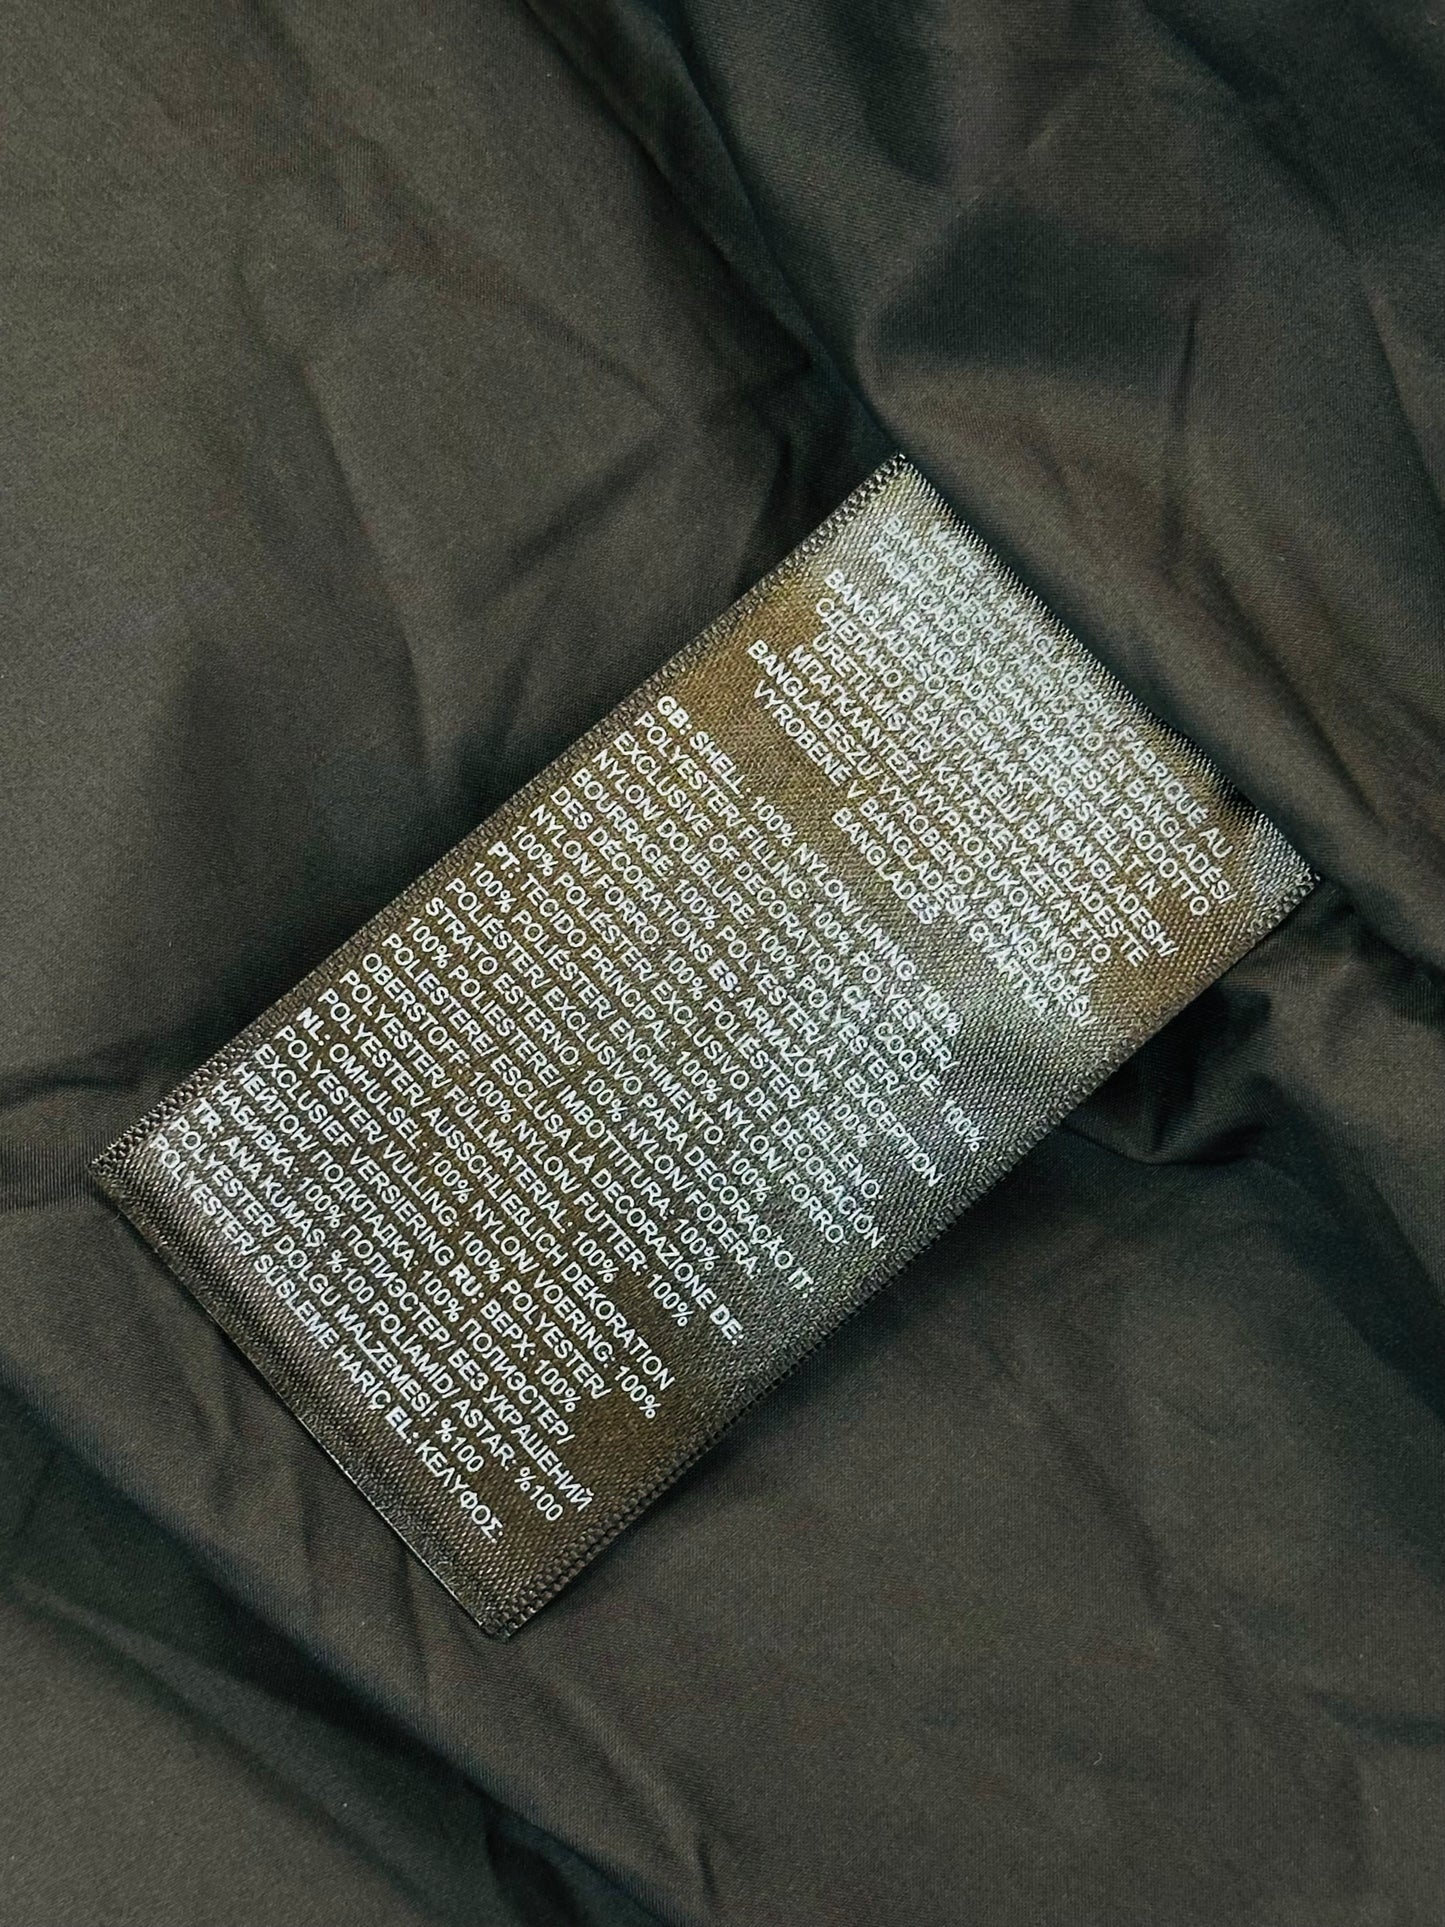 MADE IN BANGLADESH/ FABRIQUÉ AU
BANGLADESH/ FABRICADO EN BANGLADÉS/
FABRICADO NO BANGLADESH/ PRODOTTO
IN BANGLADESH/ HERGESTELLT IN
BANGLADESCH/ GEMAAKT IN BANGLADESH/
СДЕЛАНО В БАНГЛАДЕШ/ BANGLADEŞTE
ÜRETİLMİŞTİR/ ΚΑΤΑΣΚΕΥΑΖΕΤΑΙ ΣΤΟ
ΜΠΑΓΚΛΑΝΤΕΣ/ WYPRODUKOWANO W
BANGLADESZU/ VYROBENO V BANGLADÉŠI/
VYROBENÉ V BANGLADÉŠI/ GYÁRTVA:
BANGLADES
GB: SHELL: 100% NYLON/ LINING: 100%
POLYESTER/ FILLING: 100% POLYESTER/
EXCLUSIVE OF DECORATION CA COQUE: 100%
NYLON/ DOUBLURE: 100% POLYESTER/
BOURRAGE: 100% POLYESTER/ À L'EXCEPTION
DES DÉCORATIONS ES: ARMAZÓN: 100%
NYLON/ FORRO: 100% POLIÉSTER/ RELLENO:
100% POLIÉSTER/ EXCLUSIVO DE DECORACIÓN
PT: TECIDO PRINCIPAL: 100% NYLON/ FORRO:
100% POLIÉSTER/ ENCHIMENTO: 100%
POLIÉSTER/ EXCLUSIVO PARA DECORAÇÃO IT:
STRATO ESTERNO: 100% NYLON/ FODERA:
100% POLIESTERE/ IMBOTTITURA: 100%
POLIESTERE/ ESCLUSA LA DECORAZIONE DE:
OBERSTOFF: 100% NYLON/ FUTTER: 100%
POLYESTER/ FÜLLMATERIAL: 100%
POLYESTER/ AUSSCHLIEßLICH DEKORATION
NL: OMHULSEL: 100% NYLON/ VOERING: 100%
POLYESTER/ VULLING: 100% POLYESTER/
EXCLUSIEF VERSIERING RU: ВЕРХ: 100%
НЕЙЛОН/ ПОДКЛАДКА: 100% ПОЛИЭСТЕР/
НАБИВКА: 100% ПОЛИЭСТЕР/ БЕЗ УКРАШЕНИЙ
TR: ANA KUMAŞ: %100 POLİAMİD/ ASTAR: %100
POLYESTER/ DOLGU MALZEMESİ: %100
POLYESTER/ SÜSLEME HARİÇ EL: ΚΕΛΥΦΟΣ: